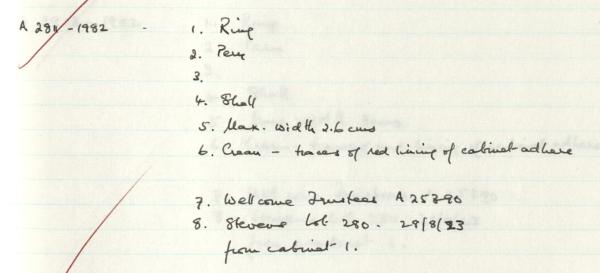 A 281 - 1982 - 1. Ring
2. Peru
3.
4. Shell
5. Max. width 2.6 cms
6. Cream - traces of red lining of cabinet adhere
7. Wellcome Trustees A 25790
8. Stevens Lot 280. 28/8/23
from cabinet 1.